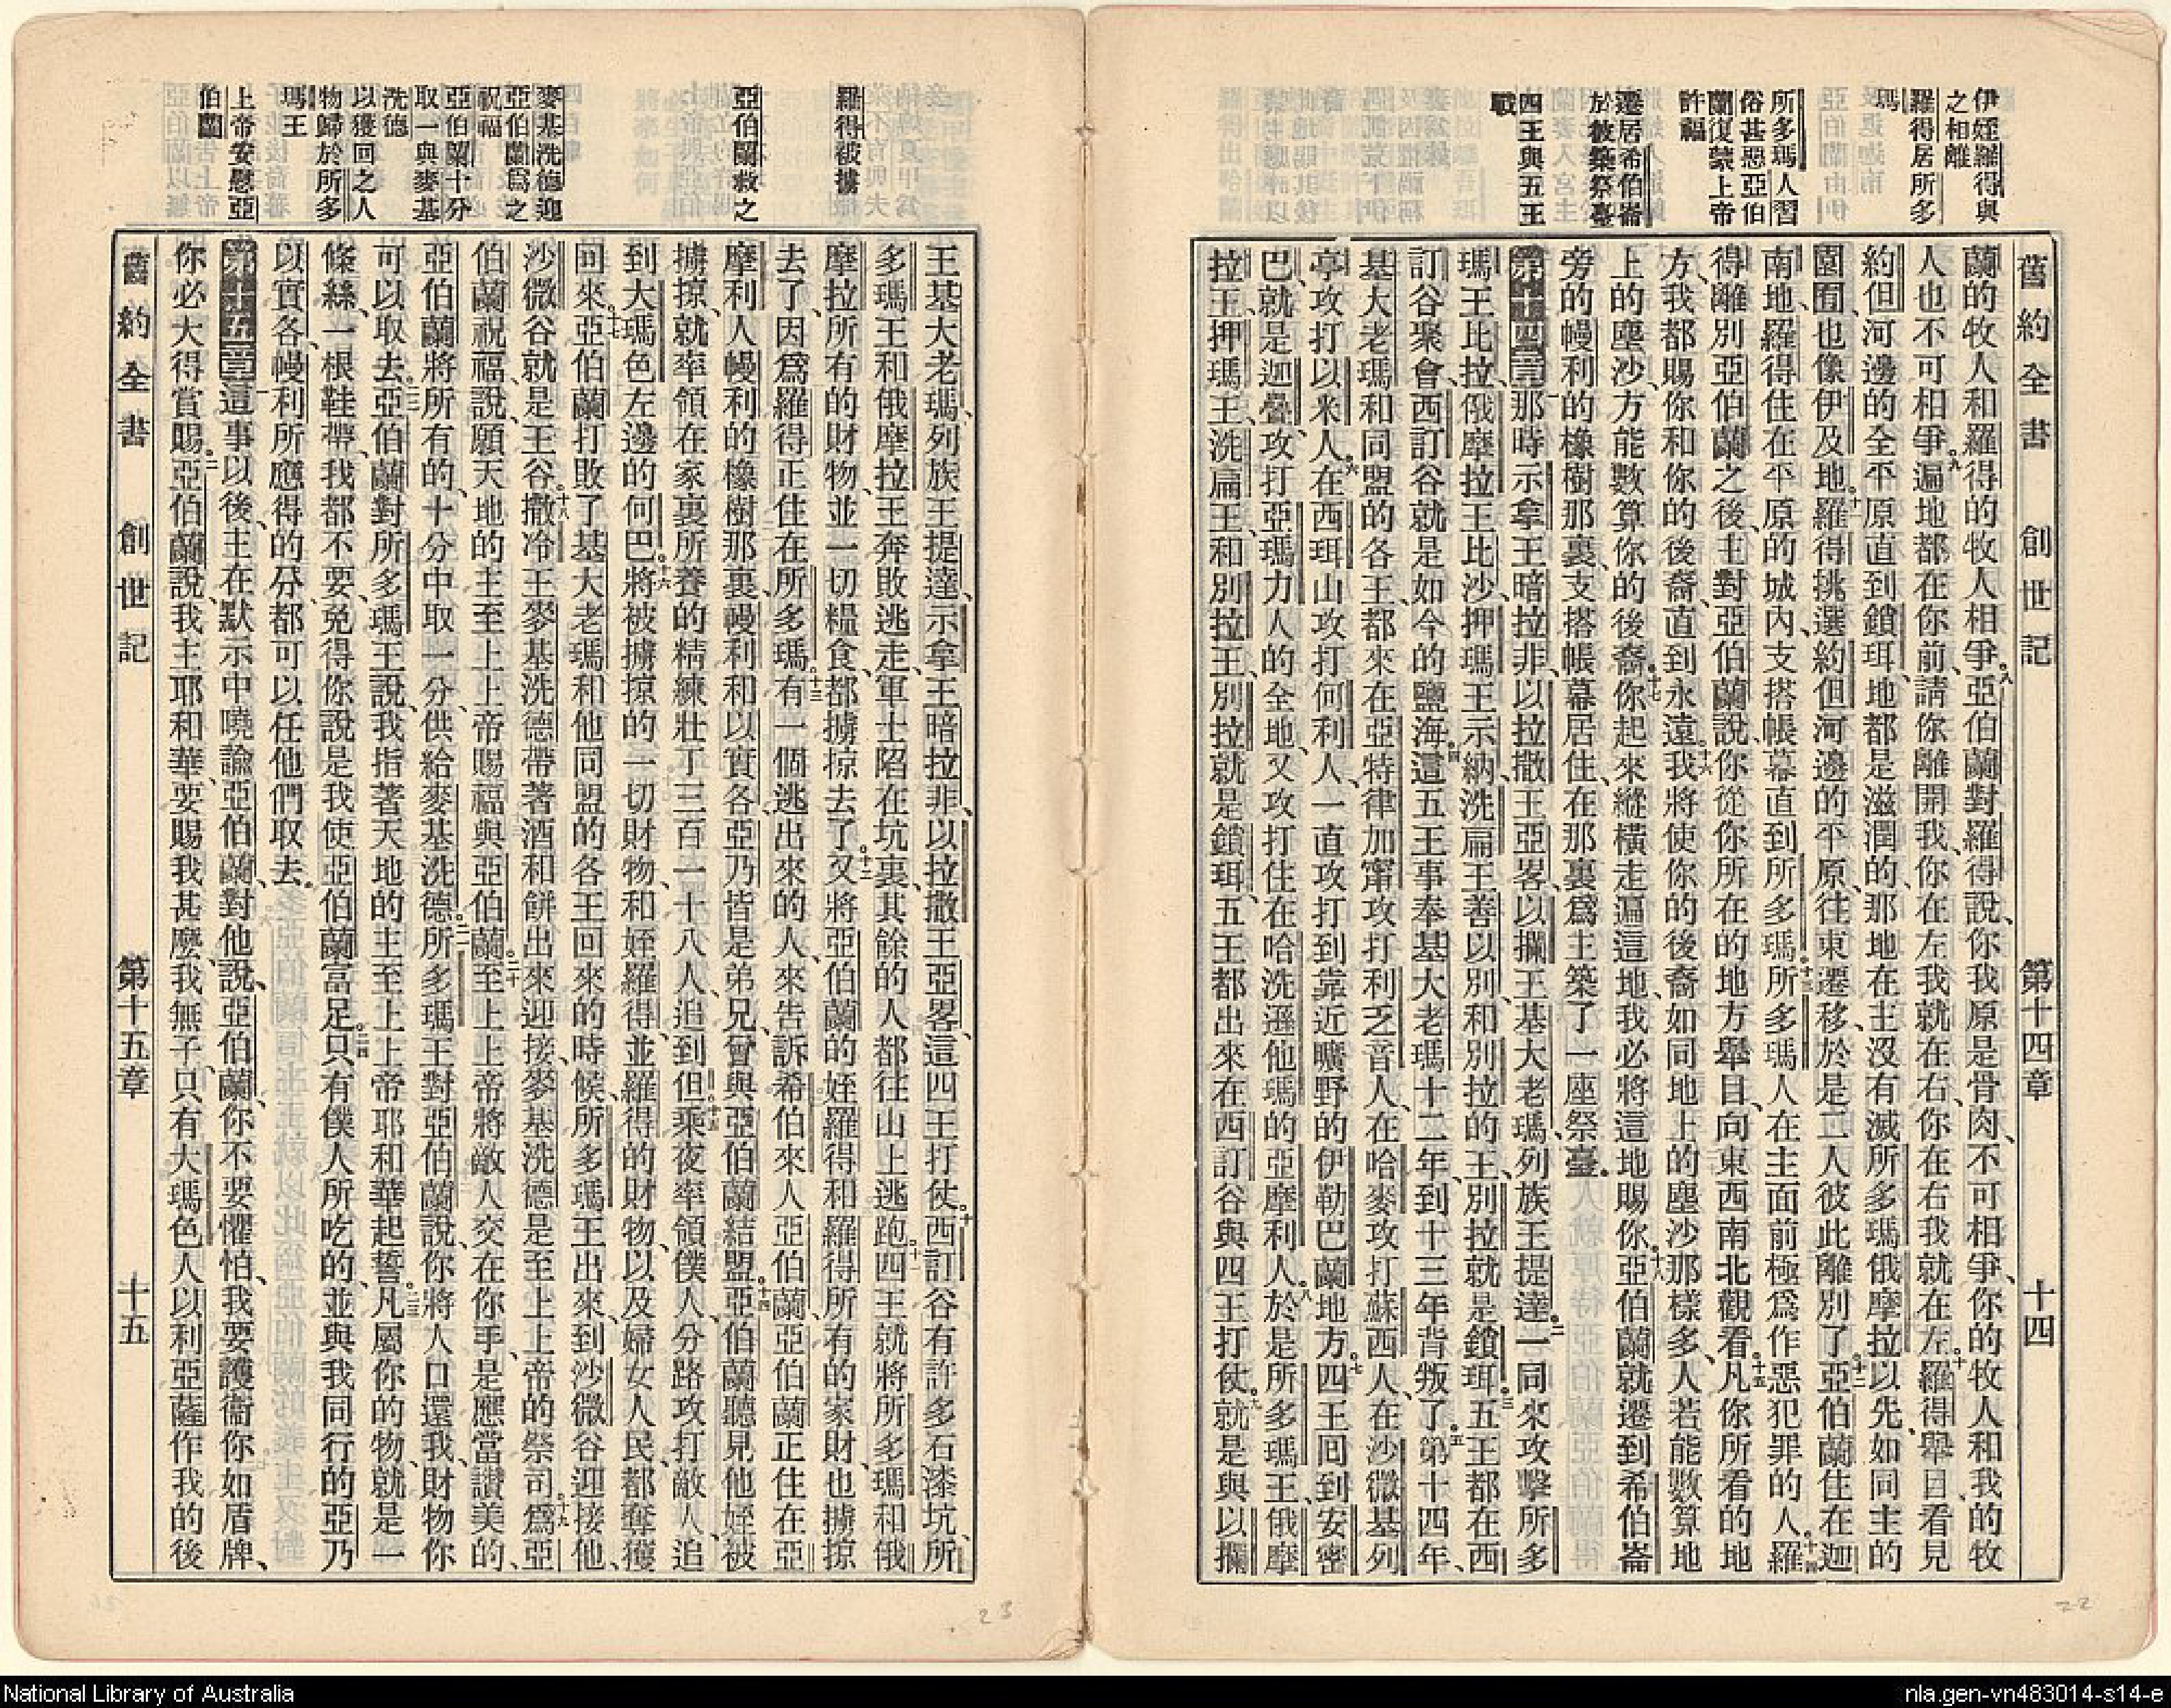 舊約全書 創世記 第十四章 十四
伊姪羅得與
之相離
羅得居所多
瑪
所多瑪人習
俗甚惡亞伯
蘭復蒙上帝
許福
遷居希伯崙
於彼築祭臺
四王與五王
戰
蘭的牧人和羅得的牧人相爭。八亞伯蘭對羅得說、你我原是骨肉、不可相爭、你的牧人和我的牧
人也不可相爭。九遍地都在你前、請你離開我、你在左我就在右、你在右我就在左。十羅得舉目看見
約但河邊的全平原直到鎖珥、地都是滋潤的、那地在主沒有滅所多瑪俄摩拉以先、如同主的
園囿、也像伊及地。十一羅得挑選約但河邊的平原、往東遷移、於是二人彼此離別了。十二亞伯蘭住在迦
南地、羅得住在平原的城內、支搭帳幕直到所多瑪。十三所多瑪人在主面前極爲作惡犯罪的人。十四羅
得離別亞伯蘭之後、主對亞伯蘭說、你從你所在的地方舉目向東西南北觀看。十五凡你所看的地
方、我都賜你和你的後裔、直到永遠。十六我將使你的後裔如同地上的塵沙那樣多、人若能數算地
上的塵沙、方能數算你的後裔。十七你起來縱橫走遍這地、我必將這地賜你。十八亞伯蘭就遷到希伯崙
旁的幔利的橡樹那裏、支搭帳幕居住、在那裏爲主築了一座祭臺。
第十四章那時示拿王暗拉非、以拉撒王亞畧、以攔王基大老瑪、列族王提達、二一同來攻擊所多
瑪王比拉、俄摩拉王比沙、押瑪王示納、洗扁王善以別、和別拉的王、別拉就是鎖珥。三五王都在西
訂谷聚會、西訂谷就是如今的鹽海。四這五王事奉基大老瑪十二年、到十三年背叛了。五第十四年、
基大老瑪和同盟的各王、都來在亞特律加甯攻打利乏音人、在哈麥攻打蘇西人、在沙微基列
亭攻打以米人。六在西珥山攻打何利人、一直攻打到靠近曠野的伊勒巴蘭地方。七四王回到安密
巴、就是迦疊、攻打亞瑪力人的全地、又攻打住在哈洗遜他瑪的亞摩利人。八於是所多瑪王、俄摩
拉王、押瑪王、洗扁王、和別拉王、別拉就是鎖珥、五王都出來在西訂谷與四王打仗。九就是與以攔
羅得被擄
亞伯蘭救之
麥基洗德迎
亞伯蘭爲之
祝福
亞伯蘭十分
取一與麥基
洗德
以獲回之人
物歸於所多
瑪王
上帝安慰亞
伯蘭
王基大老瑪、列族王提達、示拿王暗拉非、以拉撒王亞畧、這四王打仗。十西訂谷有許多石漆坑、所
多瑪王和俄摩拉王奔敗逃走、軍士陷在坑裏、其餘的人都往山上逃跑。十一四王就將所多瑪和俄
摩拉所有的財物、並一切糧食、都擄掠去了。十二又將亞伯蘭的姪羅得和羅得所有的家財、也擄掠
去了、因爲羅得正住在所多瑪。十三有一個逃出來的人、來告訴希伯來人亞伯蘭、亞伯蘭正住在亞
摩利人幔利的橡樹那裏、幔利和以實各、亞乃皆是弟兄、曾與亞伯蘭結盟。十四亞伯蘭聽見他姪被
擄掠、就率領在家裏所養的精練壯丁三百一十八人、追到但。十五乘夜率領僕人、分路攻打敵人、追
到大瑪色左邊的何巴。十六將被擄掠的一切財物、和姪羅得、並羅得的財物、以及婦女人民、都奪獲
回來。十七亞伯蘭打敗了基大老瑪和他同盟的各王回來的時候、所多瑪王出來、到沙微谷迎接他、
沙微谷就是王谷。十八撒冷王麥基洗德帶著酒和餅出來迎接、麥基洗德是至上上帝的祭司。十九爲亞
伯蘭祝福、說、願天地的主至上上帝賜福與亞伯蘭。二十至上上帝將敵人交在你手、是應當讚美的、
亞伯蘭將所有的、十分中取一分、供給麥基洗德。二一所多瑪王對亞伯蘭說、你將人口還我、財物你
可以取去。二二亞伯蘭對所多瑪王說、我指著天地的主至上上帝耶和華起誓。二三凡屬你的物、就是一
條絲、一根鞋帶、我都不要、免得你說是我使亞伯蘭富足。二四只有僕人所吃的、並與我同行的亞乃
以實各、幔利所應得的分、都可以任他們取去。
第十五章這事以後、主在默示中曉諭亞伯蘭、對他說、亞伯蘭、你不要懼怕、我要護衞你如盾牌、
你必大得賞賜。二亞伯蘭說、我主耶和華、要賜我甚麼、我無子、只有大瑪色人以利亞薩作我的後
舊約全書 創世記 第十五章 十五
23
22
National Library of Australia
nla.gen-vn483014-s14-e